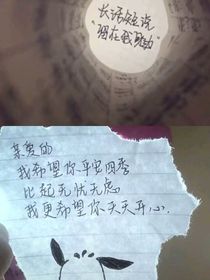 长话短说
"现在我有助"
亲爱的
我希望你平安四季
比起无忧无虑
我更希望你天天开心.